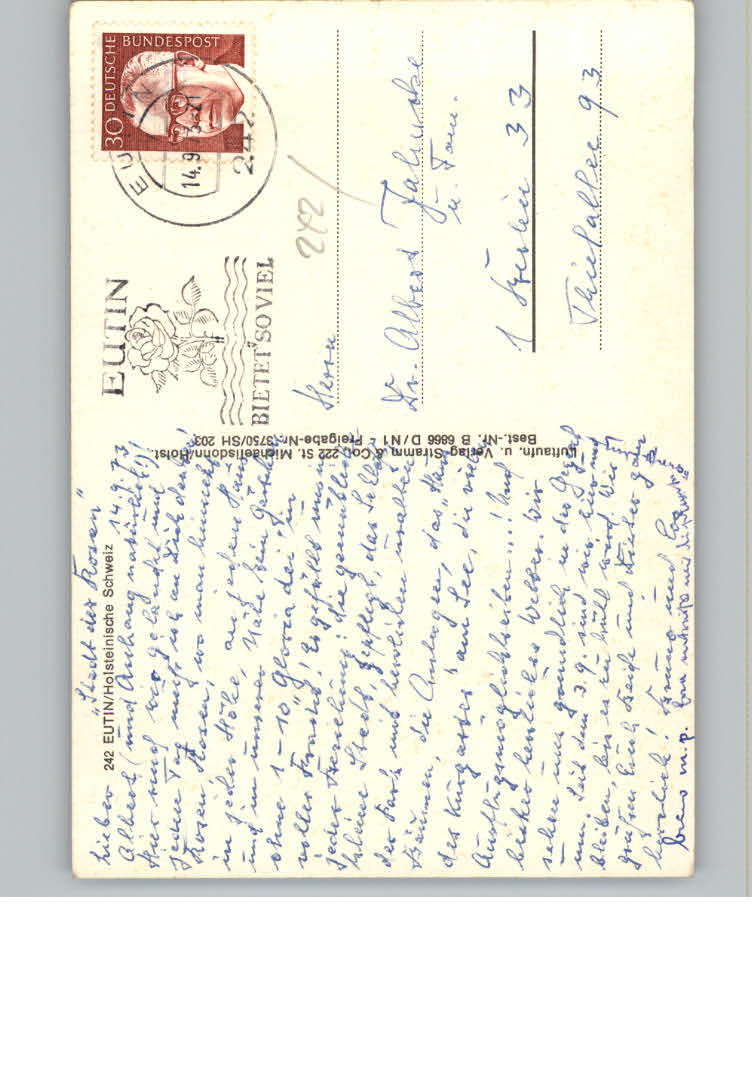 "Stadt der Rosen"
242 EUTIN/Holsteinische Schweiz
14.9.73
Lieber
Albert (und Anhang natürlich)!
Hier sind wir gelandet und
jeden Tag muß ich an Dich denken!
Rosen, Rosen, wo man hinsieht
in jeder Höhe, an jedem Haus
und in unserer Nähe ein Garten
ohne 1-10 "Gloria dei", in
voller Pracht! Es gefällt uns in
jeder Beziehung: die gemütliche
kleine Stadt, gepflegt, das Schloß
der Park mit herrlichen uralten
Bäumen, die Anlagen, das "Haus
des Kurgastes" am See, die vielen
Ausflugsmöglichkeiten...! Und
bisher herrliches Wetter. Wir
sehen uns gründlich in der Gegend
um. Seit dem 3.9. sind wir hier und
bleiben, bis es zu kalt wird. Wir
grüßen Euch beide und
herzlich! Bruno und
Luftaufn. u. Verlag Stramm & Co., 222 St. Michaelisdonn/Holst.
Best.-Nr. B 6866 D/N1 - Freigabe-Nr. 3750/SH 203
EUTIN
BIETET SO VIEL
EUTIN
14.9.73-21
242
DEUTSCHE BUNDESPOST
30
242
Herrn
Dr. Albert Jahncke
u. Fam.
1 Berlin 33
Thielallee 93